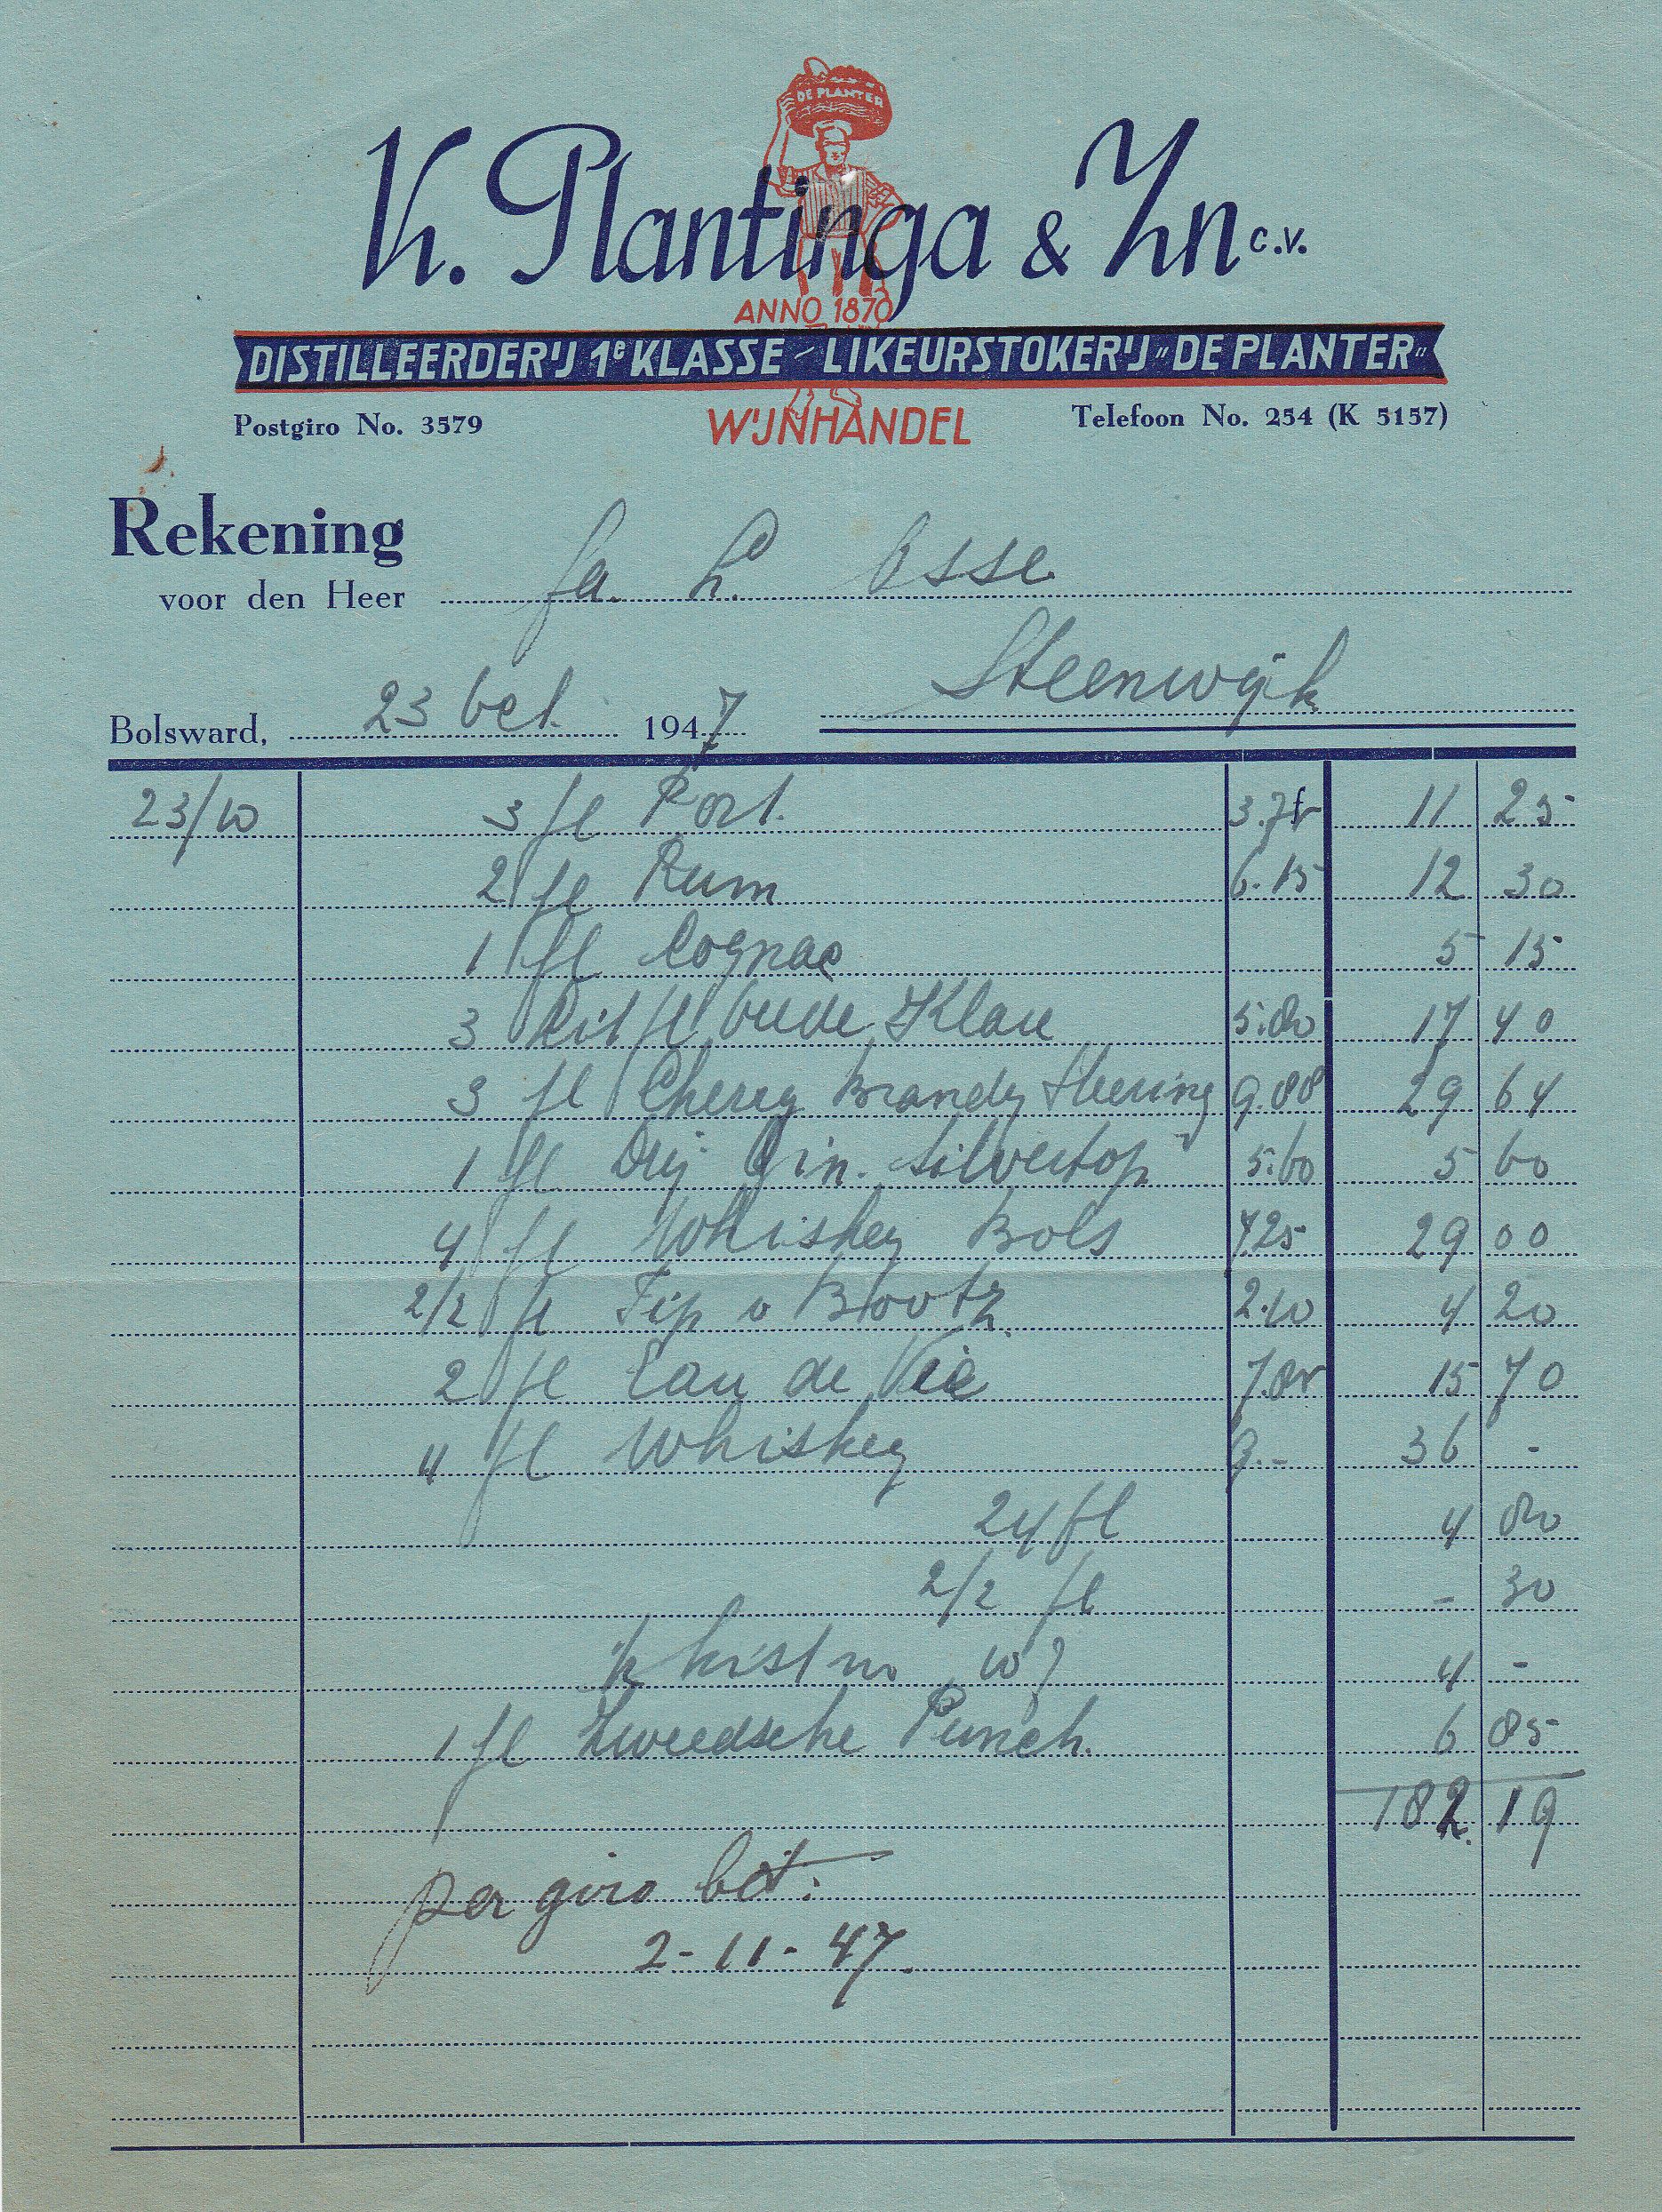 DE PLANTER
K. Plantinga & Zn c.v.
ANNO 1870
DISTILLEERDERIJ 1e KLASSE - LIKEURSTOKERIJ "DE PLANTER"
Postgiro No. 3579 WIJNHANDEL Telefoon No. 254 (K 5157)
Rekening
voor den Heer fa. h. Osse
Steenwijk
Bolsward, 23 Oct. 1947
23/10 3 fl Port. 3.75 11 25
2 fl Rum 6.15 12 30
1 fl Cognac 5 15
3 Lit fl Oude Klare 5.80 17 40
3 fl Cherry Brandy Heering 9.88 29 64
1 fl Drij Gin. Silvertop 5.60 5 60
4 fl Whiskey Bols 7.25 29 00
2/2 fl Tip v Bootz. 2.10 4 20
2 fl Eau de Vie 7.85 15 70
4 fl Whiskey 9.- 36 -
24 fl 4 80
2/2 fl - 30
kist no 4 -
1 fl Zweedsche Punch. 6 85
182. 19
per giro bet:
2-11-47.